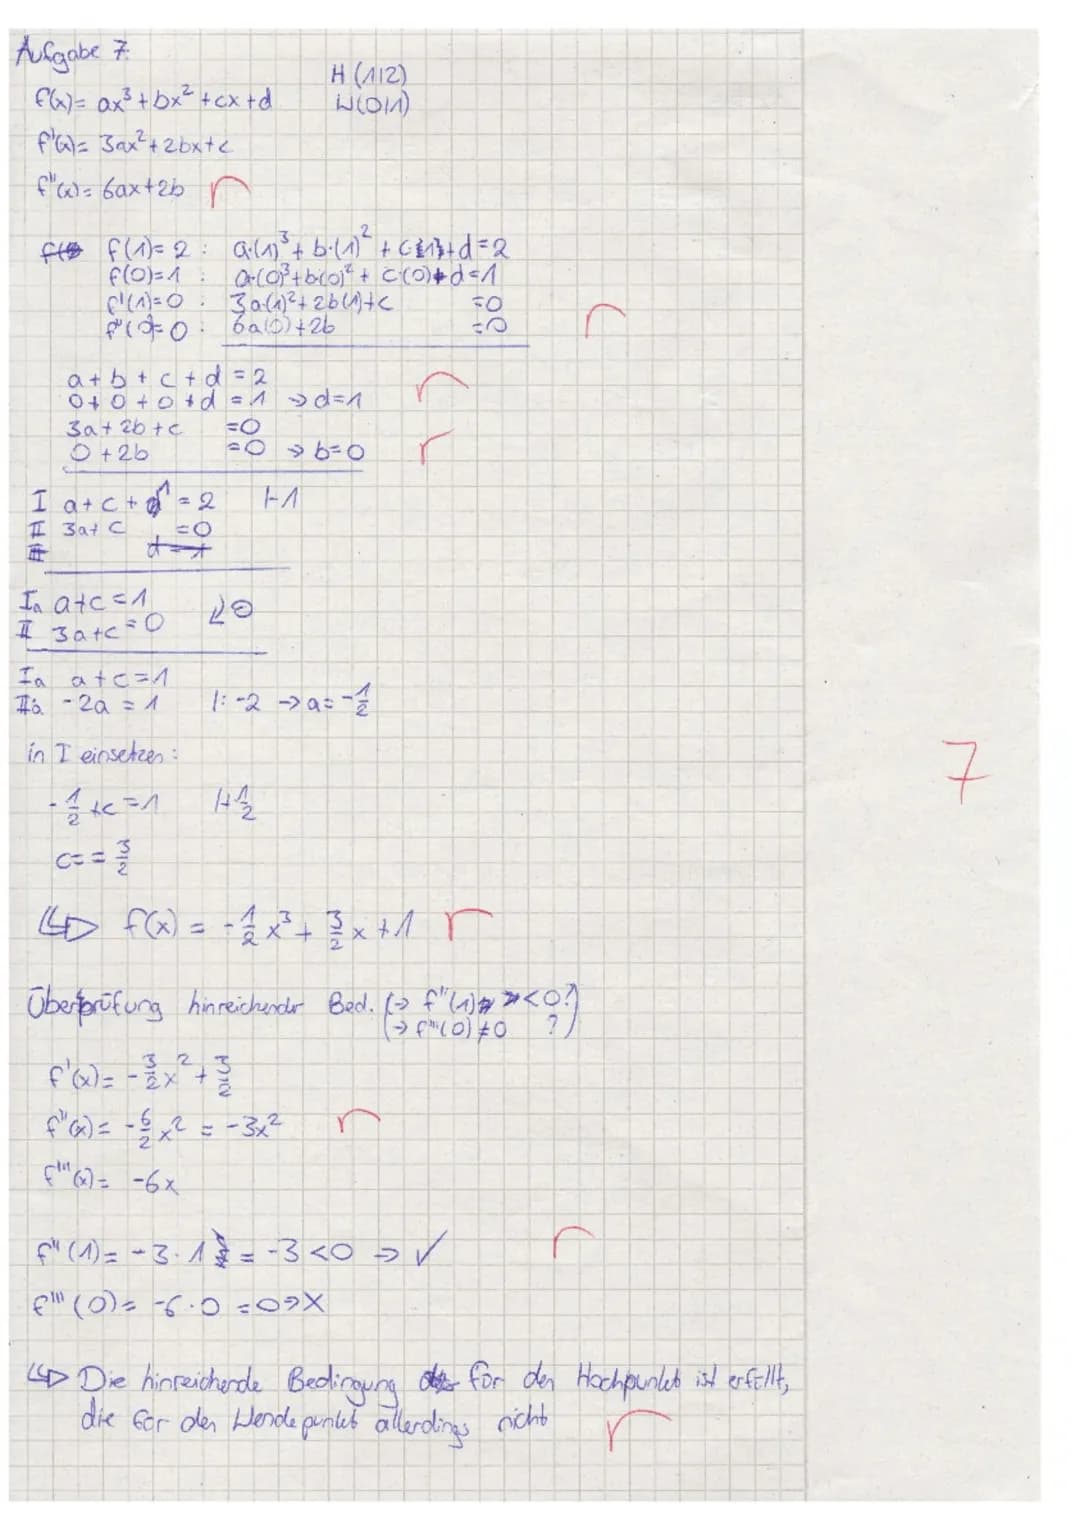 Aufgabe 7:
H (1|2)
f(x)= ax³+bx²+cx+d
W(0|1)
f'(x)= 3ax²+2bx+c
f''(x)= 6ax+2b r
f(1)=2: a·(1)³+b·(1)²+c·(1)+d=2
f(0)=1: a·(0)³+b·(0)²+c·(0)+d=1
f'(1)=0: 3a(1)²+2b(1)+c =0
f''(0)=0: 6a(0)+2b =0 r
a+b+c+d=2 r
0+0+0+d=1 → d=1
3a+2b+c =0
0+2b =0 → b=0 r
I a+c+1=2 |-1
II 3a+c =0
Ia a+c=1
II 3a+c=0 ↙⊖
Ia a+c=1
IIa -2a=1 |:-2 → a=-1/2
in I einsetzen:
7
-1/2+c=1 |+1/2
c==3/2
f(x)= -1/2x³+3/2x+1 r
Überprüfung hinreichender Bed. (→ f''(1)<0?)
(→ f'''(0)≠0 ?)
f'(x)= -3/2x²+3/2
f''(x)= -6/2x² = -3x² r
f'''(x)= -6x
f''(1)= -3·1 = -3<0 → ✓ r
f'''(0)= -6·0 =0→X
Die hinreichende Bedingung für den Hochpunkt ist erfüllt,
die für den Wendepunkt allerdings nicht r